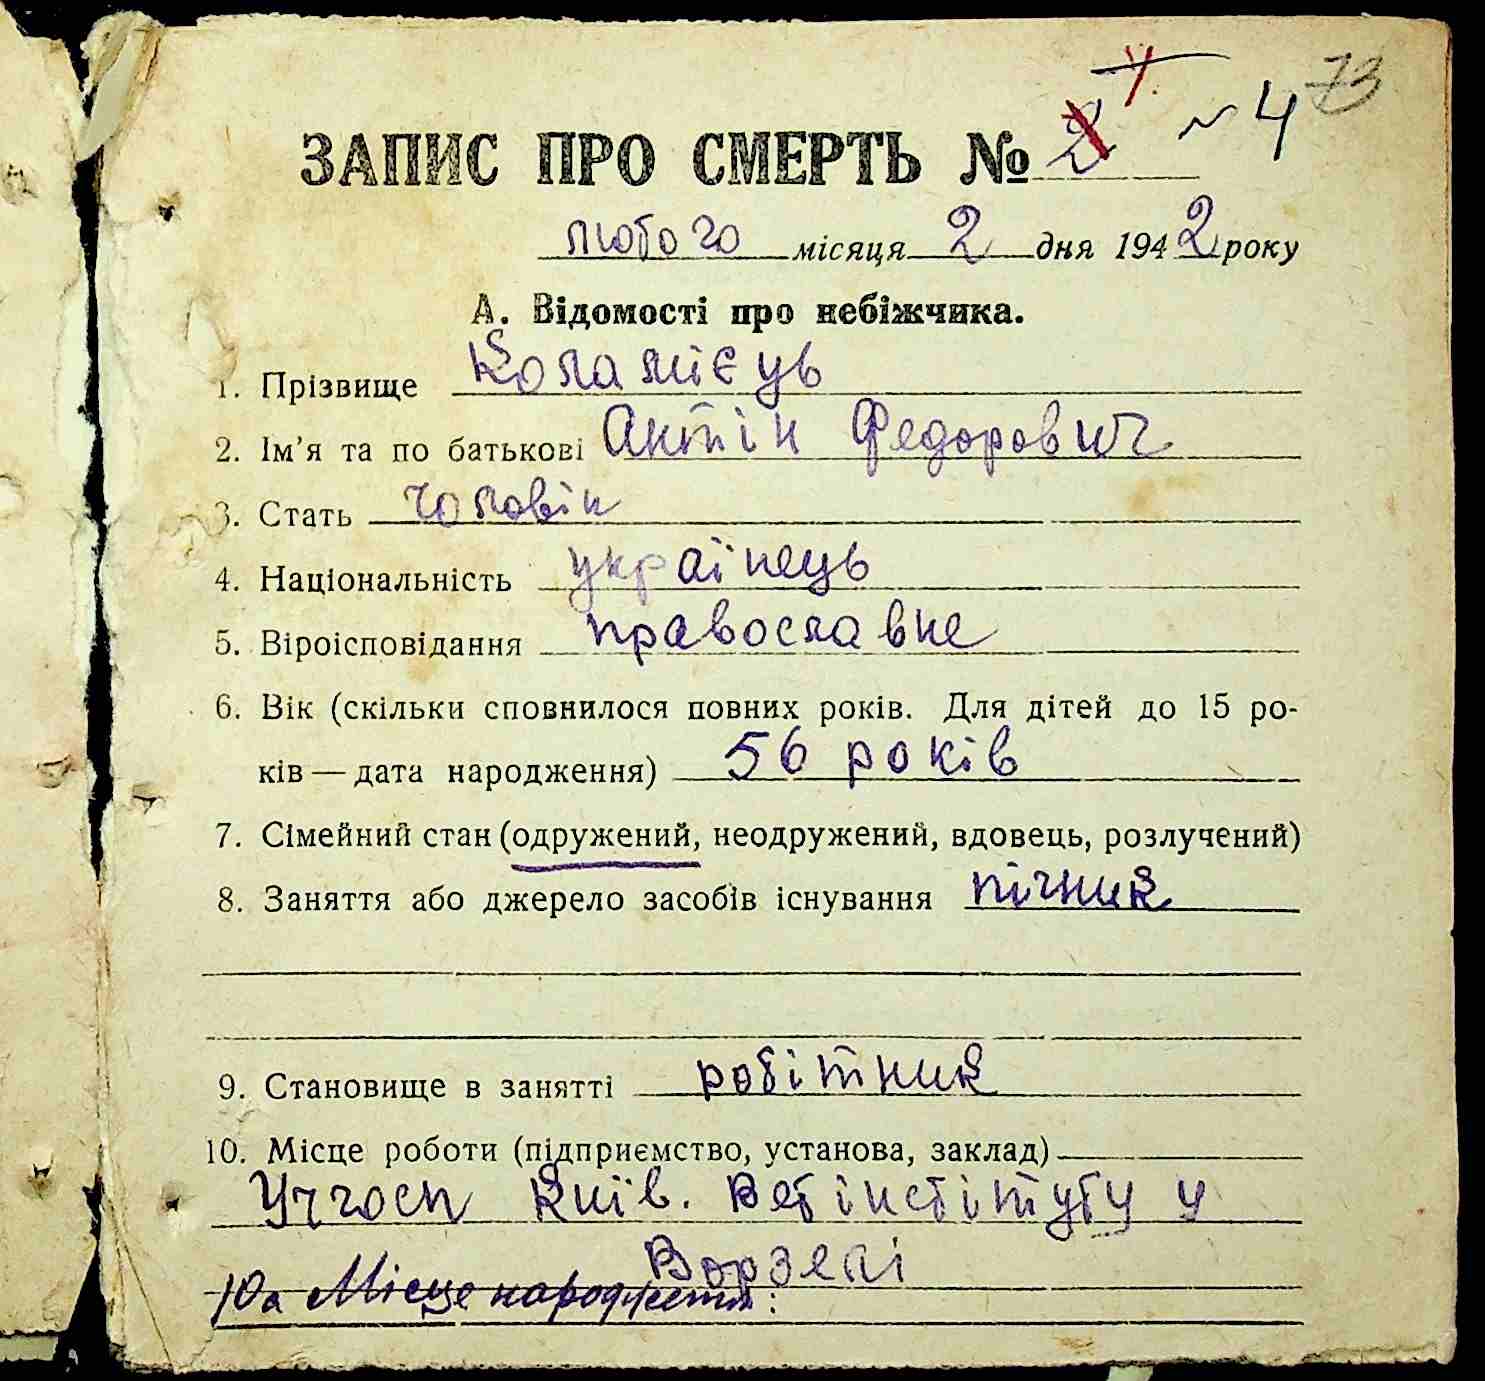 73
ЗАПИС ПРО СМЕРТЬ № 2 4 ~ 4
лютого місяця 2 дня 1942 року
А. Відомості про небіжчика.
1. Прізвище Коламієць
2. Ім’я та по батькові Антін Федорович
3. Стать чоловік
4. Національність українець
5. Віроісповідання православне
6. Вік (скільки сповнилося повних років. Для дітей до 15 ро-
ків — дата народження) 56 років
7. Сімейний стан (одружений, неодружений, вдовець, розлучений)
8. Заняття або джерело засобів існування пічник
9. Становище в занятті робітник
10. Місце роботи (підприємство, установа, заклад)
Учгосп Київ. Ветінстітуту у
Ворзелі
10а Місце народження: